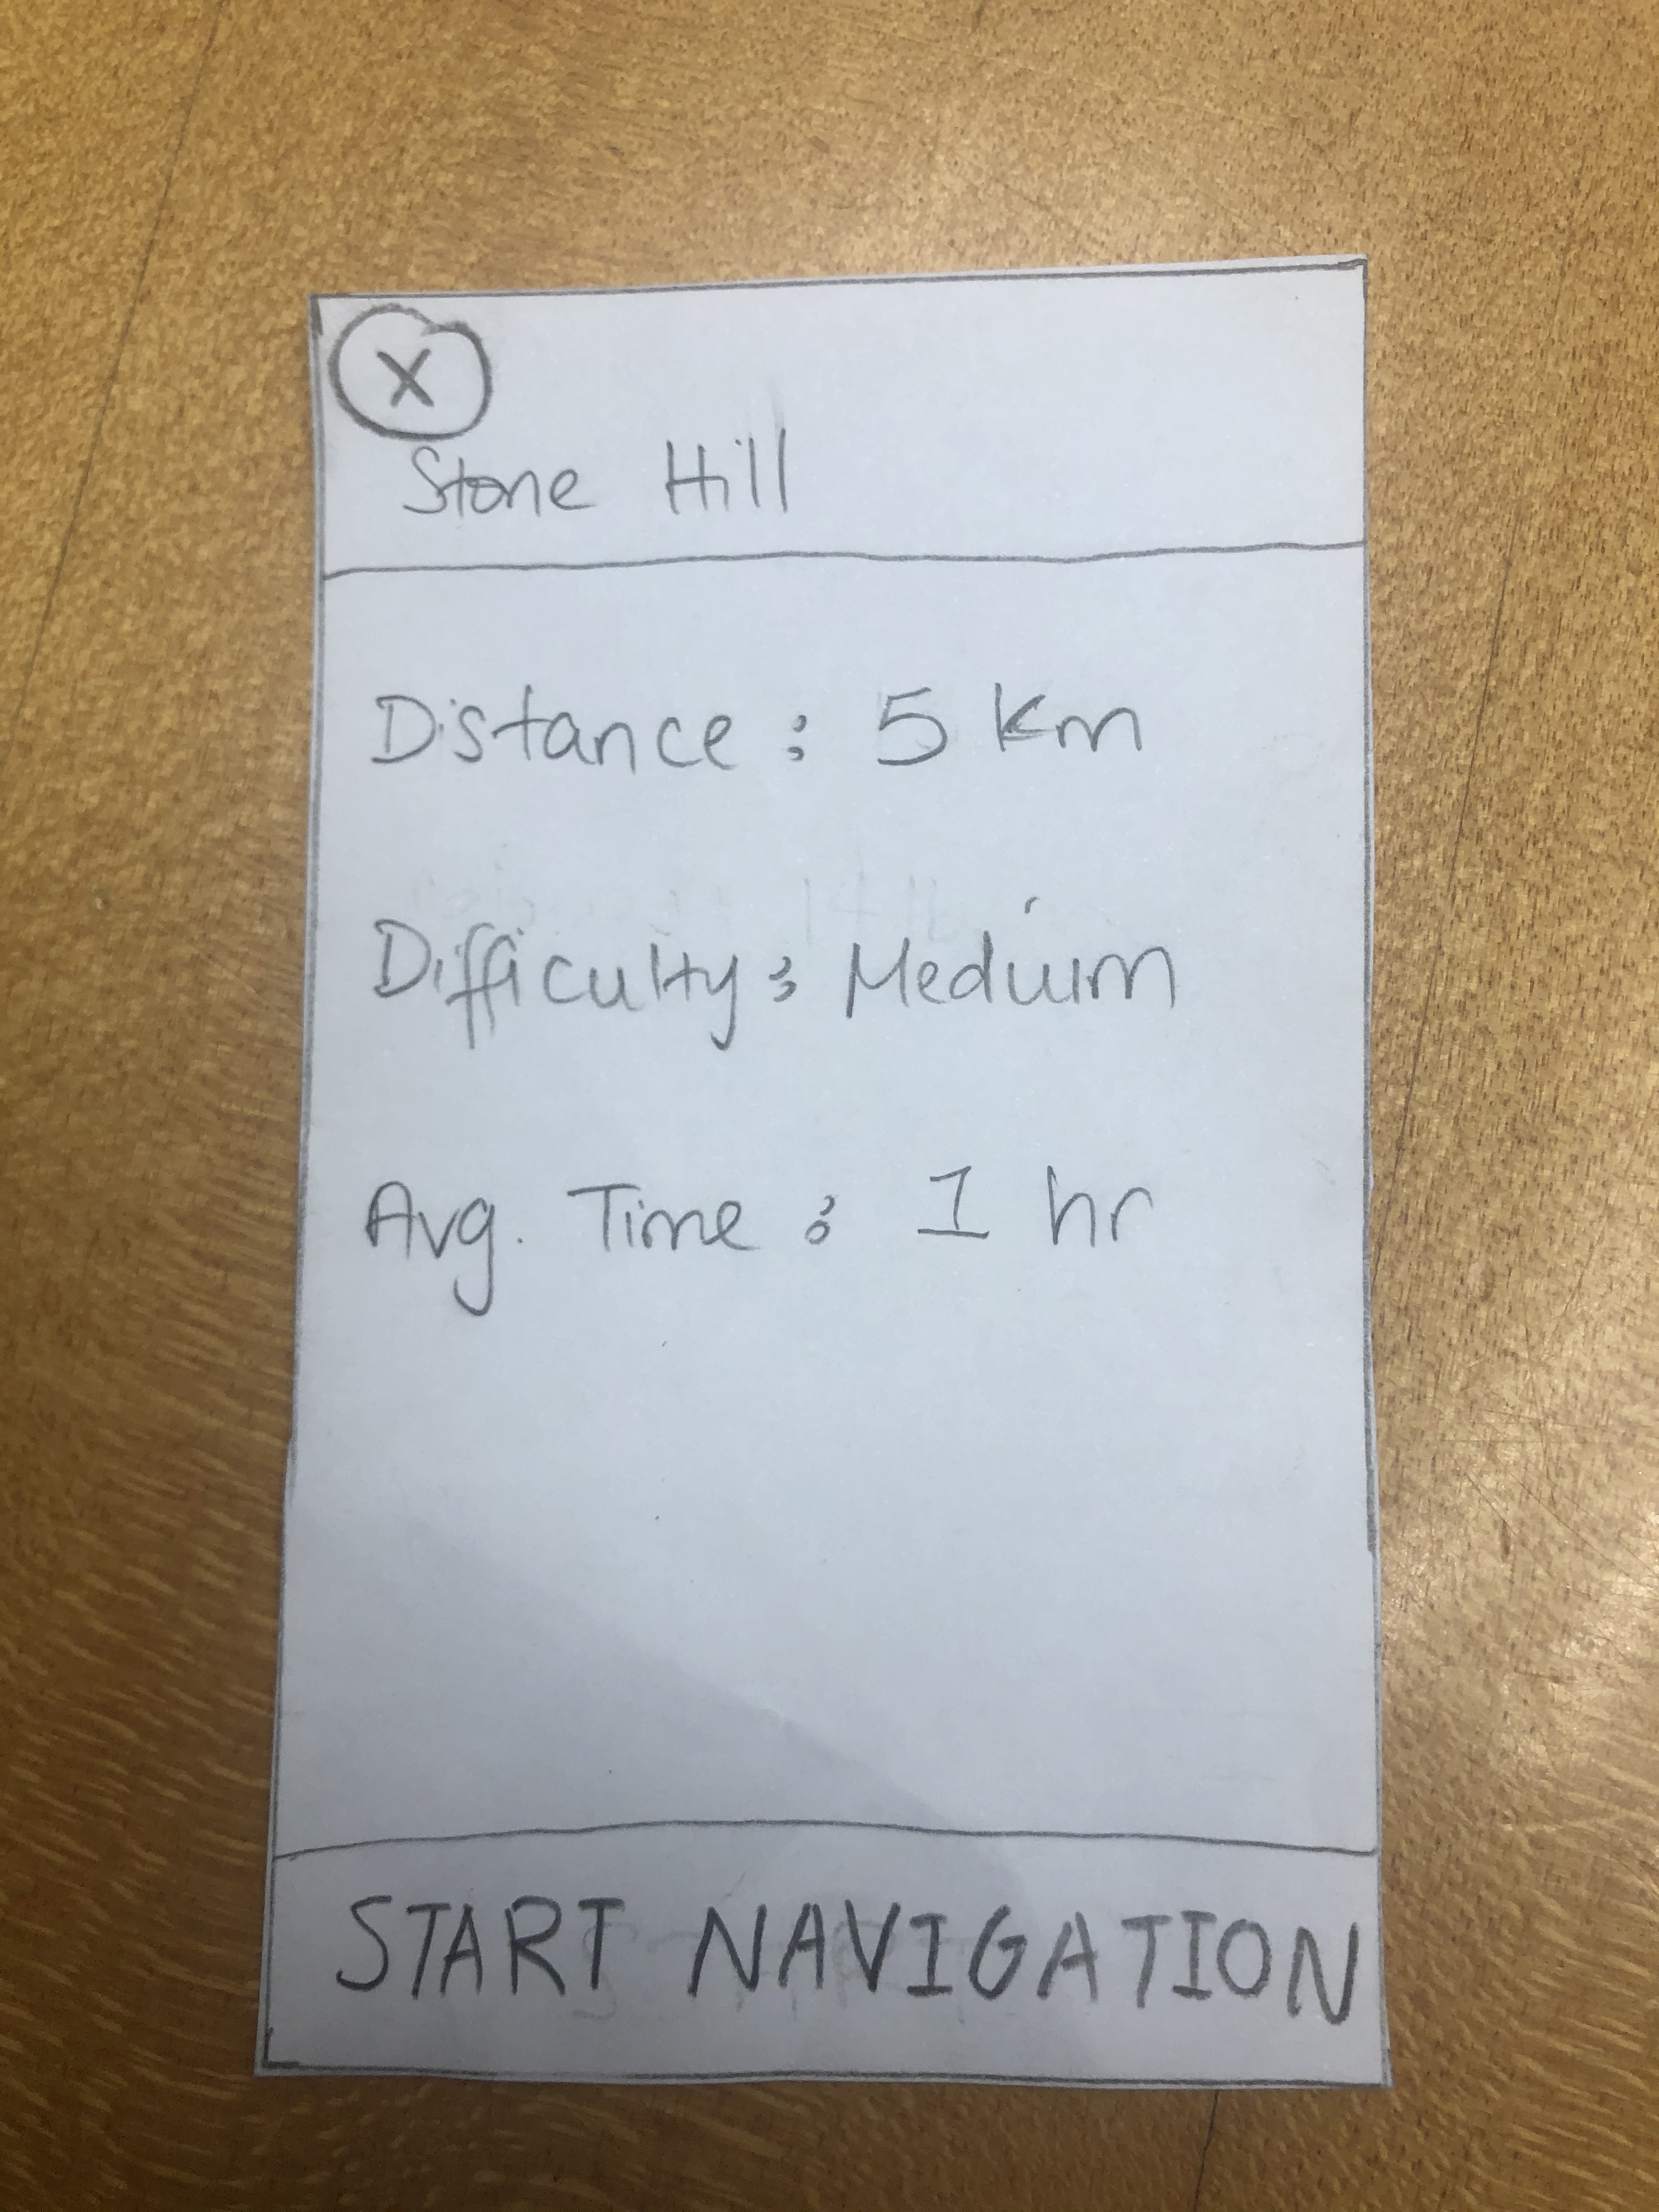 X
Stone Hill
Distance : 5 km
Difficulty : Medium
Avg. Time : 1 hr
START NAVIGATION